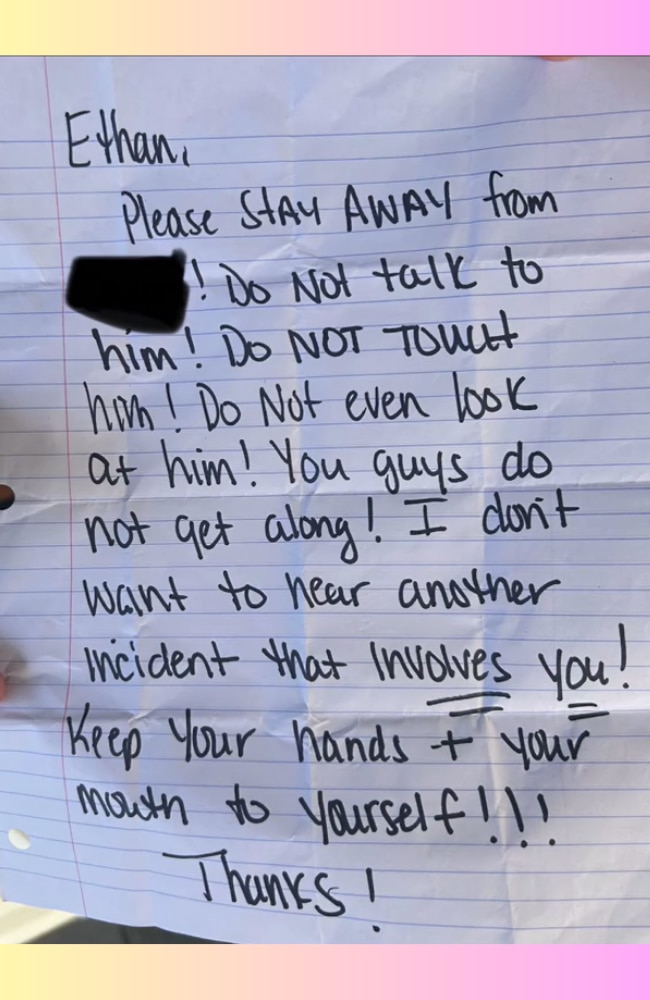 Ethan,
Please STAY AWAY from
! Do Not talk to
him! Do NOT TOUCH
him! Do Not even look
at him! You guys do
not get along! I don't
want to hear another
incident that involves you!
Keep your hands + your
mouth to yourself!!!
Thanks!